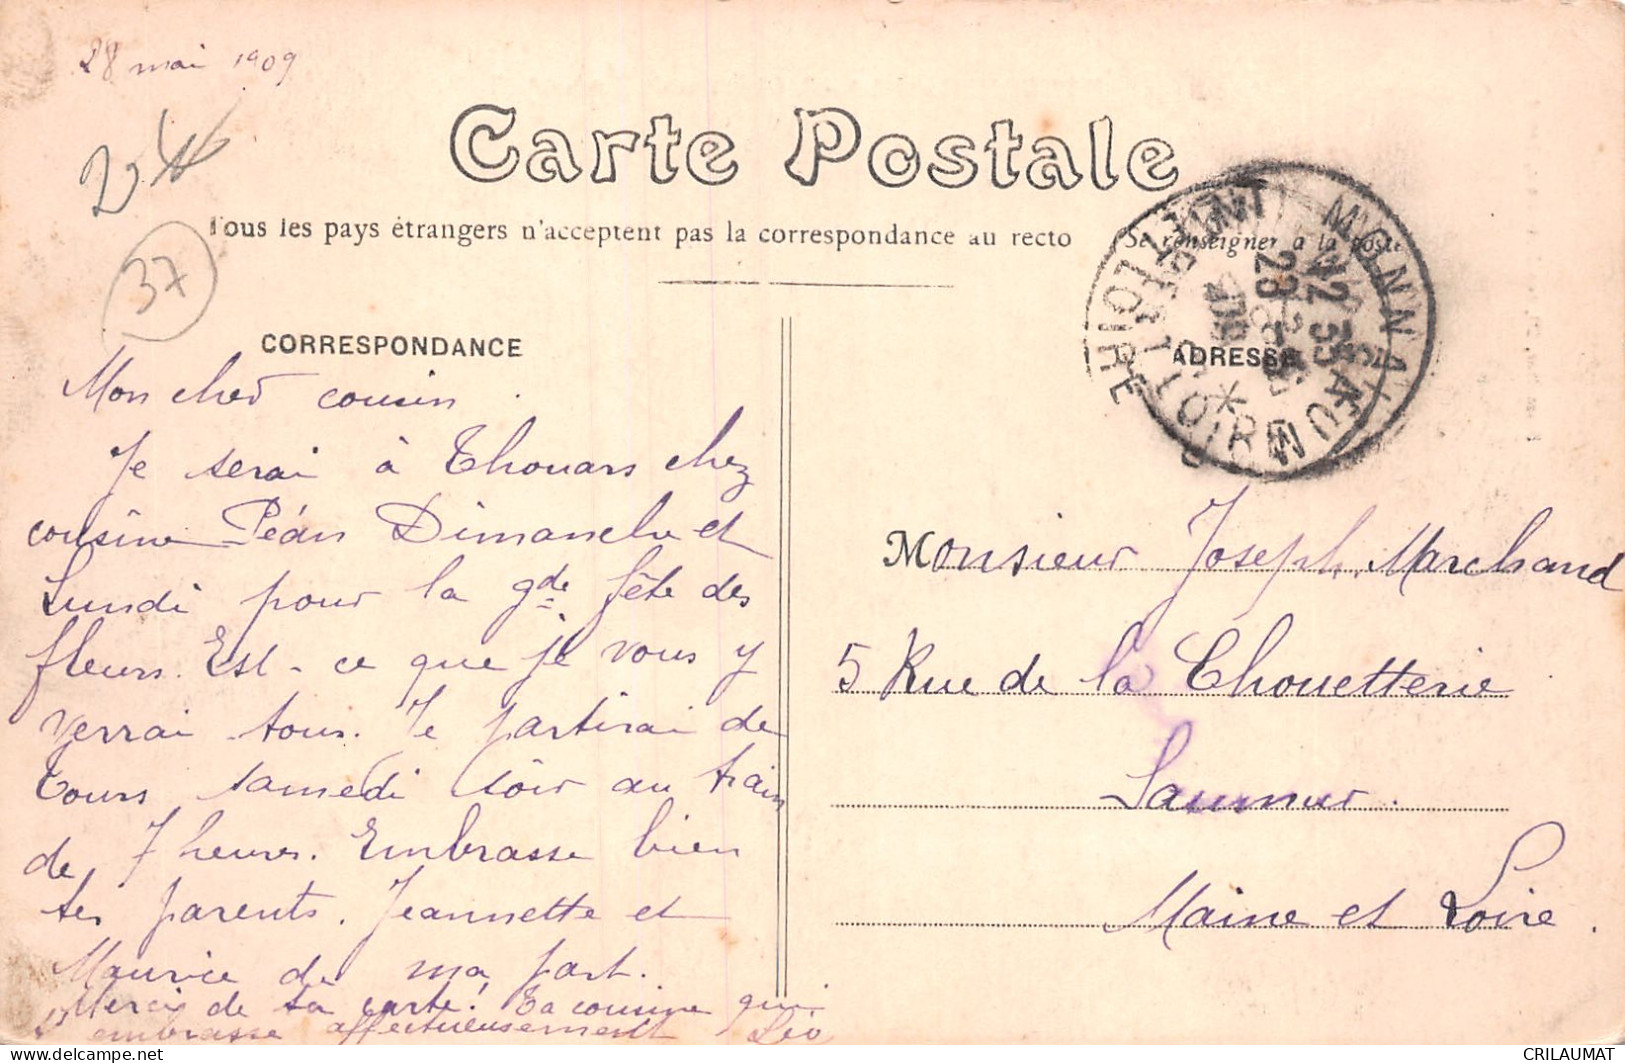 28 mai 1909
Carte Postale
Tous les pays étrangers n'acceptent pas la correspondance au recto Se renseigner à la poste
37
CORRESPONDANCE
ADRESSE
Mon cher cousin
Je serai à Thouars chez
cousine Péan Dimanche et
Lundi pour la gde fête des
fleurs. Est-ce que je vous y
verrai tous. Je partirai de
Tours samedi soir au train
de 7 heures. Embrasse bien
tes parents. Jeannette et
Maurice de ma part.
Merci de ta carte! Ta cousine qui
t'embrasse affectueusement Léo
Monsieur Joseph Marchand
5 Rue de la Chouetterie
Saumur.
Maine et Loire.
LOIRE
CRILAUMAT